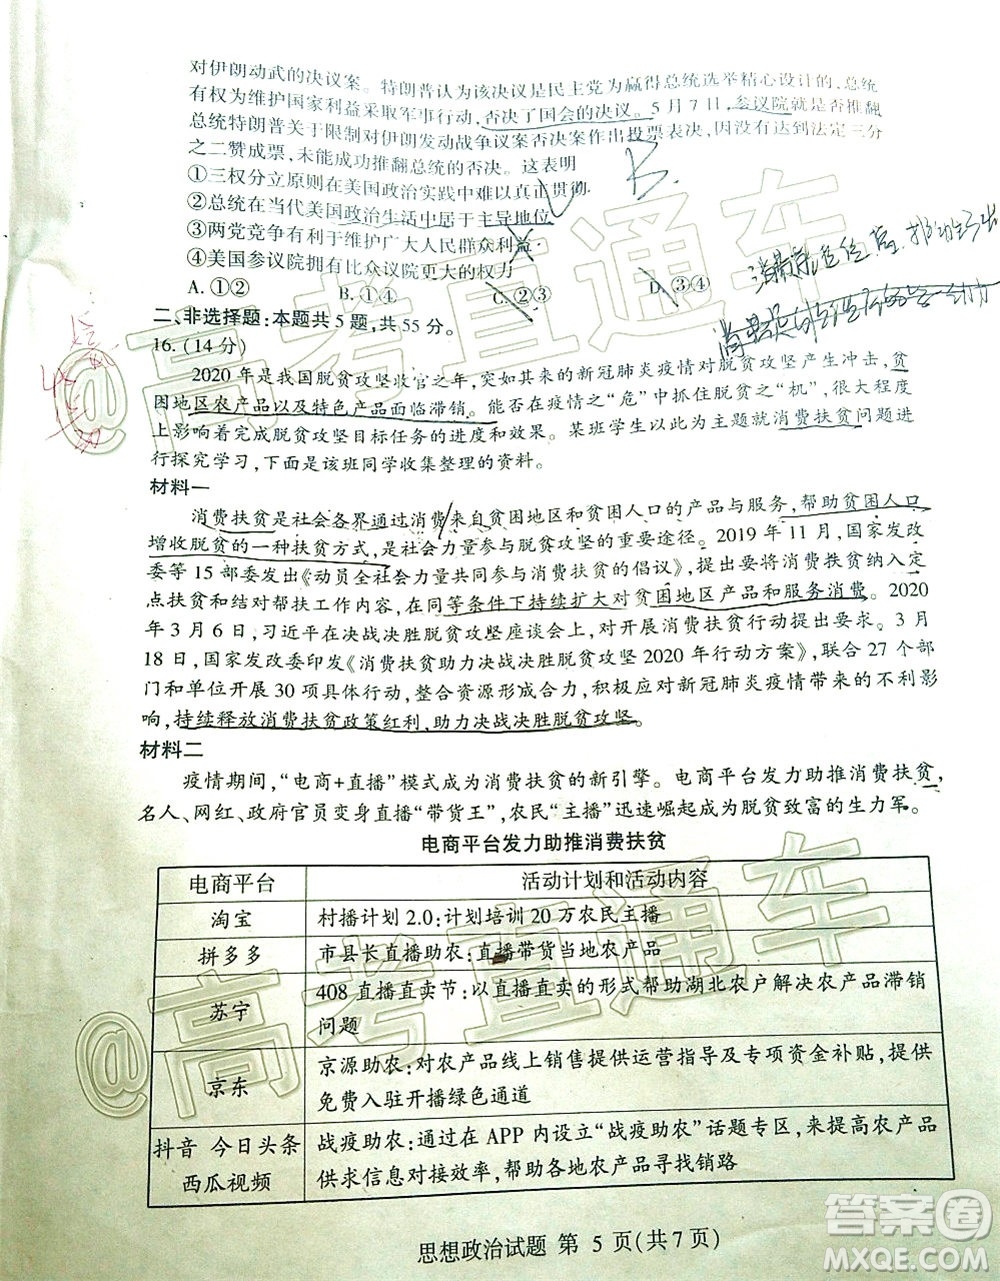 对伊朗动武的决议案。特朗普认为该决议是民主党为赢得总统选举精心设计的,总统
有权为维护国家利益采取军事行动,否决了国会的决议。5月7日,参议院就是否推翻
总统特朗普关于限制对伊朗发动战争议案否决案作出投票表决,因没有达到法定三分
之二赞成票,未能成功推翻总统的否决。这表明
①三权分立原则在美国政治实践中难以真正贯彻
②总统在当代美国政治生活中居于主导地位
③两党竞争有利于维护广大人民群众利益
④美国参议院拥有比众议院更大的权力
A.①② B.①④ C.②③ D.③④
B.
二、非选择题:本题共5题,共55分。
16.(14分)
2020年是我国脱贫攻坚收官之年,突如其来的新冠肺炎疫情对脱贫攻坚产生冲击,贫
困地区农产品以及特色产品面临滞销。能否在疫情之“危”中抓住脱贫之“机”,很大程度
上影响着完成脱贫攻坚目标任务的进度和效果。某班学生以此为主题就消费扶贫问题进
行探究学习,下面是该班同学收集整理的资料。
材料一
消费扶贫是社会各界通过消费来自贫困地区和贫困人口的产品与服务,帮助贫困人口
增收脱贫的一种扶贫方式,是社会力量参与脱贫攻坚的重要途径。2019年11月,国家发改
委等15部委发出《动员全社会力量共同参与消费扶贫的倡议》,提出要将消费扶贫纳入定
点扶贫和结对帮扶工作内容,在同等条件下持续扩大对贫困地区产品和服务消费。2020
年3月6日,习近平在决战决胜脱贫攻坚座谈会上,对开展消费扶贫行动提出要求。3月
18日,国家发改委印发《消费扶贫助力决战决胜脱贫攻坚2020年行动方案》,联合27个部
门和单位开展30项具体行动,整合资源形成合力,积极应对新冠肺炎疫情带来的不利影
响,持续释放消费扶贫政策红利,助力决战决胜脱贫攻坚。
材料二
疫情期间,“电商+直播”模式成为消费扶贫的新引擎。电商平台发力助推消费扶贫,
名人、网红、政府官员变身直播“带货王”,农民“主播”迅速崛起成为脱贫致富的生力军。
电商平台发力助推消费扶贫
电商平台 活动计划和活动内容
淘宝 村播计划2.0:计划培训20万农民主播
拼多多 市县长直播助农:直播带货当地农产品
苏宁 408直播直卖节:以直播直卖的形式帮助湖北农户解决农产品滞销
问题
京东 京源助农:对农产品线上销售提供运营指导及专项资金补贴,提供
免费入驻开播绿色通道
抖音 今日头条
西瓜视频 战疫助农:通过在APP内设立“战疫助农”话题专区,来提高农产品
供求信息对接效率,帮助各地农产品寻找销路
思想政治试题 第5页(共7页)
@高考直通车
@高考直通车
答案圈
MXQE.COM